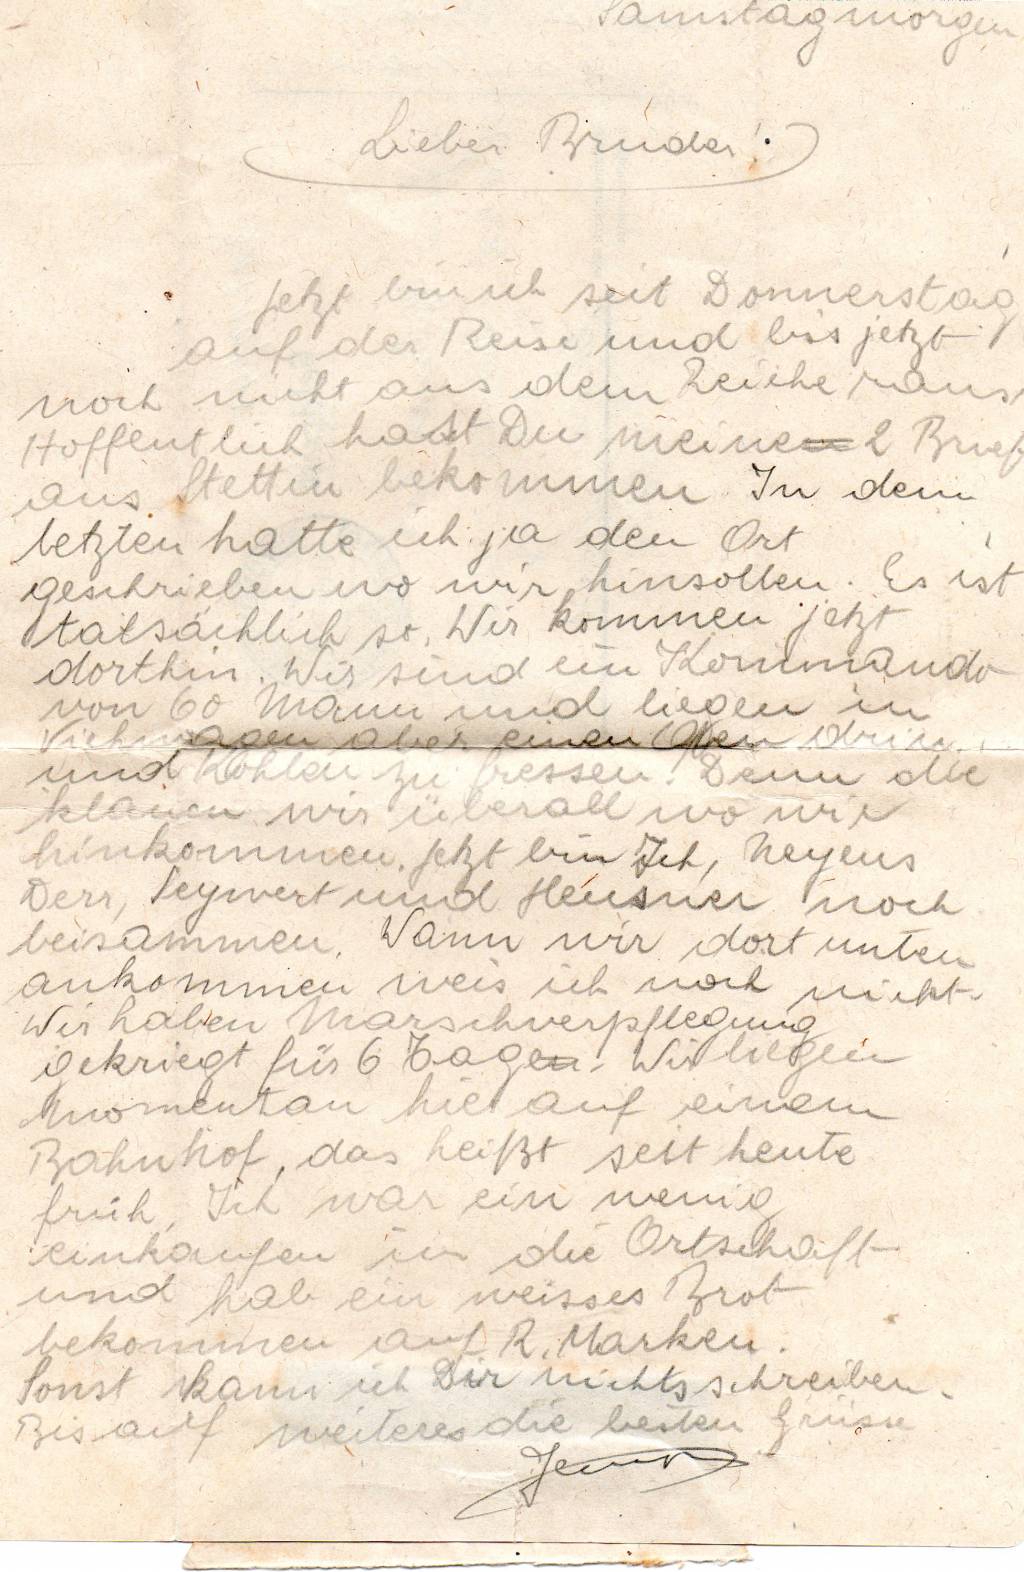 Samstagmorgen
Lieber Bruder!
Jetzt bin ich seit Donnerstag
auf der Reise und bis jetzt
noch nicht aus dem Reiche raus
Hoffentlich hast Du meine 2 Brief
aus Stettin bekommen In dem
letzten hatte ich ja den Ort
geschrieben wo wir hinsollen. Es ist
tatsächlich so. Wir kommen jetzt
dorthin. Wir sind ein Kommando
von 60 Mann und liegen in
Viehwagen aber einen Ofen drin
und Kohlen zu fressen! Denn die
klauen wir überall wo wir
hinkommen. Jetzt bin Ich, Neyens
Derr, Seywert und Heusner noch
beisammen. Wann wir dort unten
ankommen weis ich noch nicht.
Wir haben Marschverpflegung
gekriegt für 6 Tage. Wir liegen
momentan hie auf einem
Bahnhof, das heißt seit heute
früh, Ich war ein wenig
einkaufen in die Ortschaft
und hab ein weisses Brot
bekommen auf R. Marken.
Sonst kann ich Dir nichts schreiben.
Bis auf weiteres die besten Grüsse